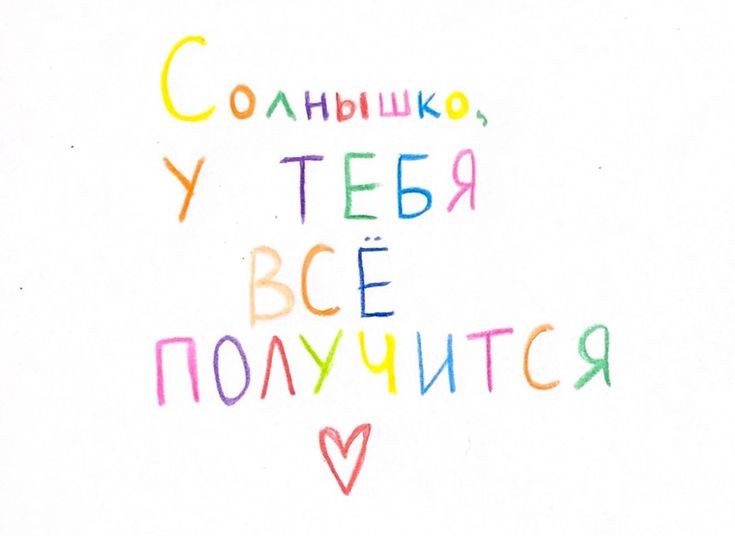 Солнышко,
У ТЕБЯ
ВСЁ
ПОЛУЧИТСЯ